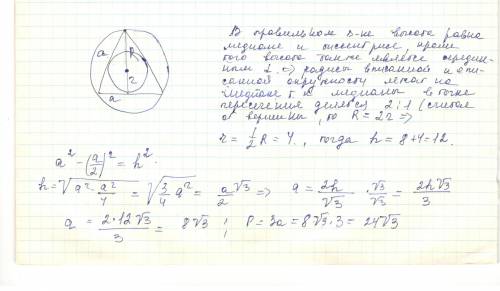 a R
r
a
В правильном Δ-ке высота равна
медиане и биссектрисе, кроме
того высота также является середин-
ным ⊥. => радиусы вписанной и опи-
санной окружности лежат на
медиане т.к. медианы в точке
пересечения делятся 2:1 (считая
от вершины), то R = 2r =>
r = 1/2 R = 4, тогда h = 8+4=12.
a² - (a/2)² = h²
h = √(a² - a²/4) = √(3/4 a²) = a√3/2 => a = 2h/√3 · √3/√3 = 2h√3/3
a = 2·12√3/3 = 8√3 ; P = 3a = 8√3·3 = 24√3